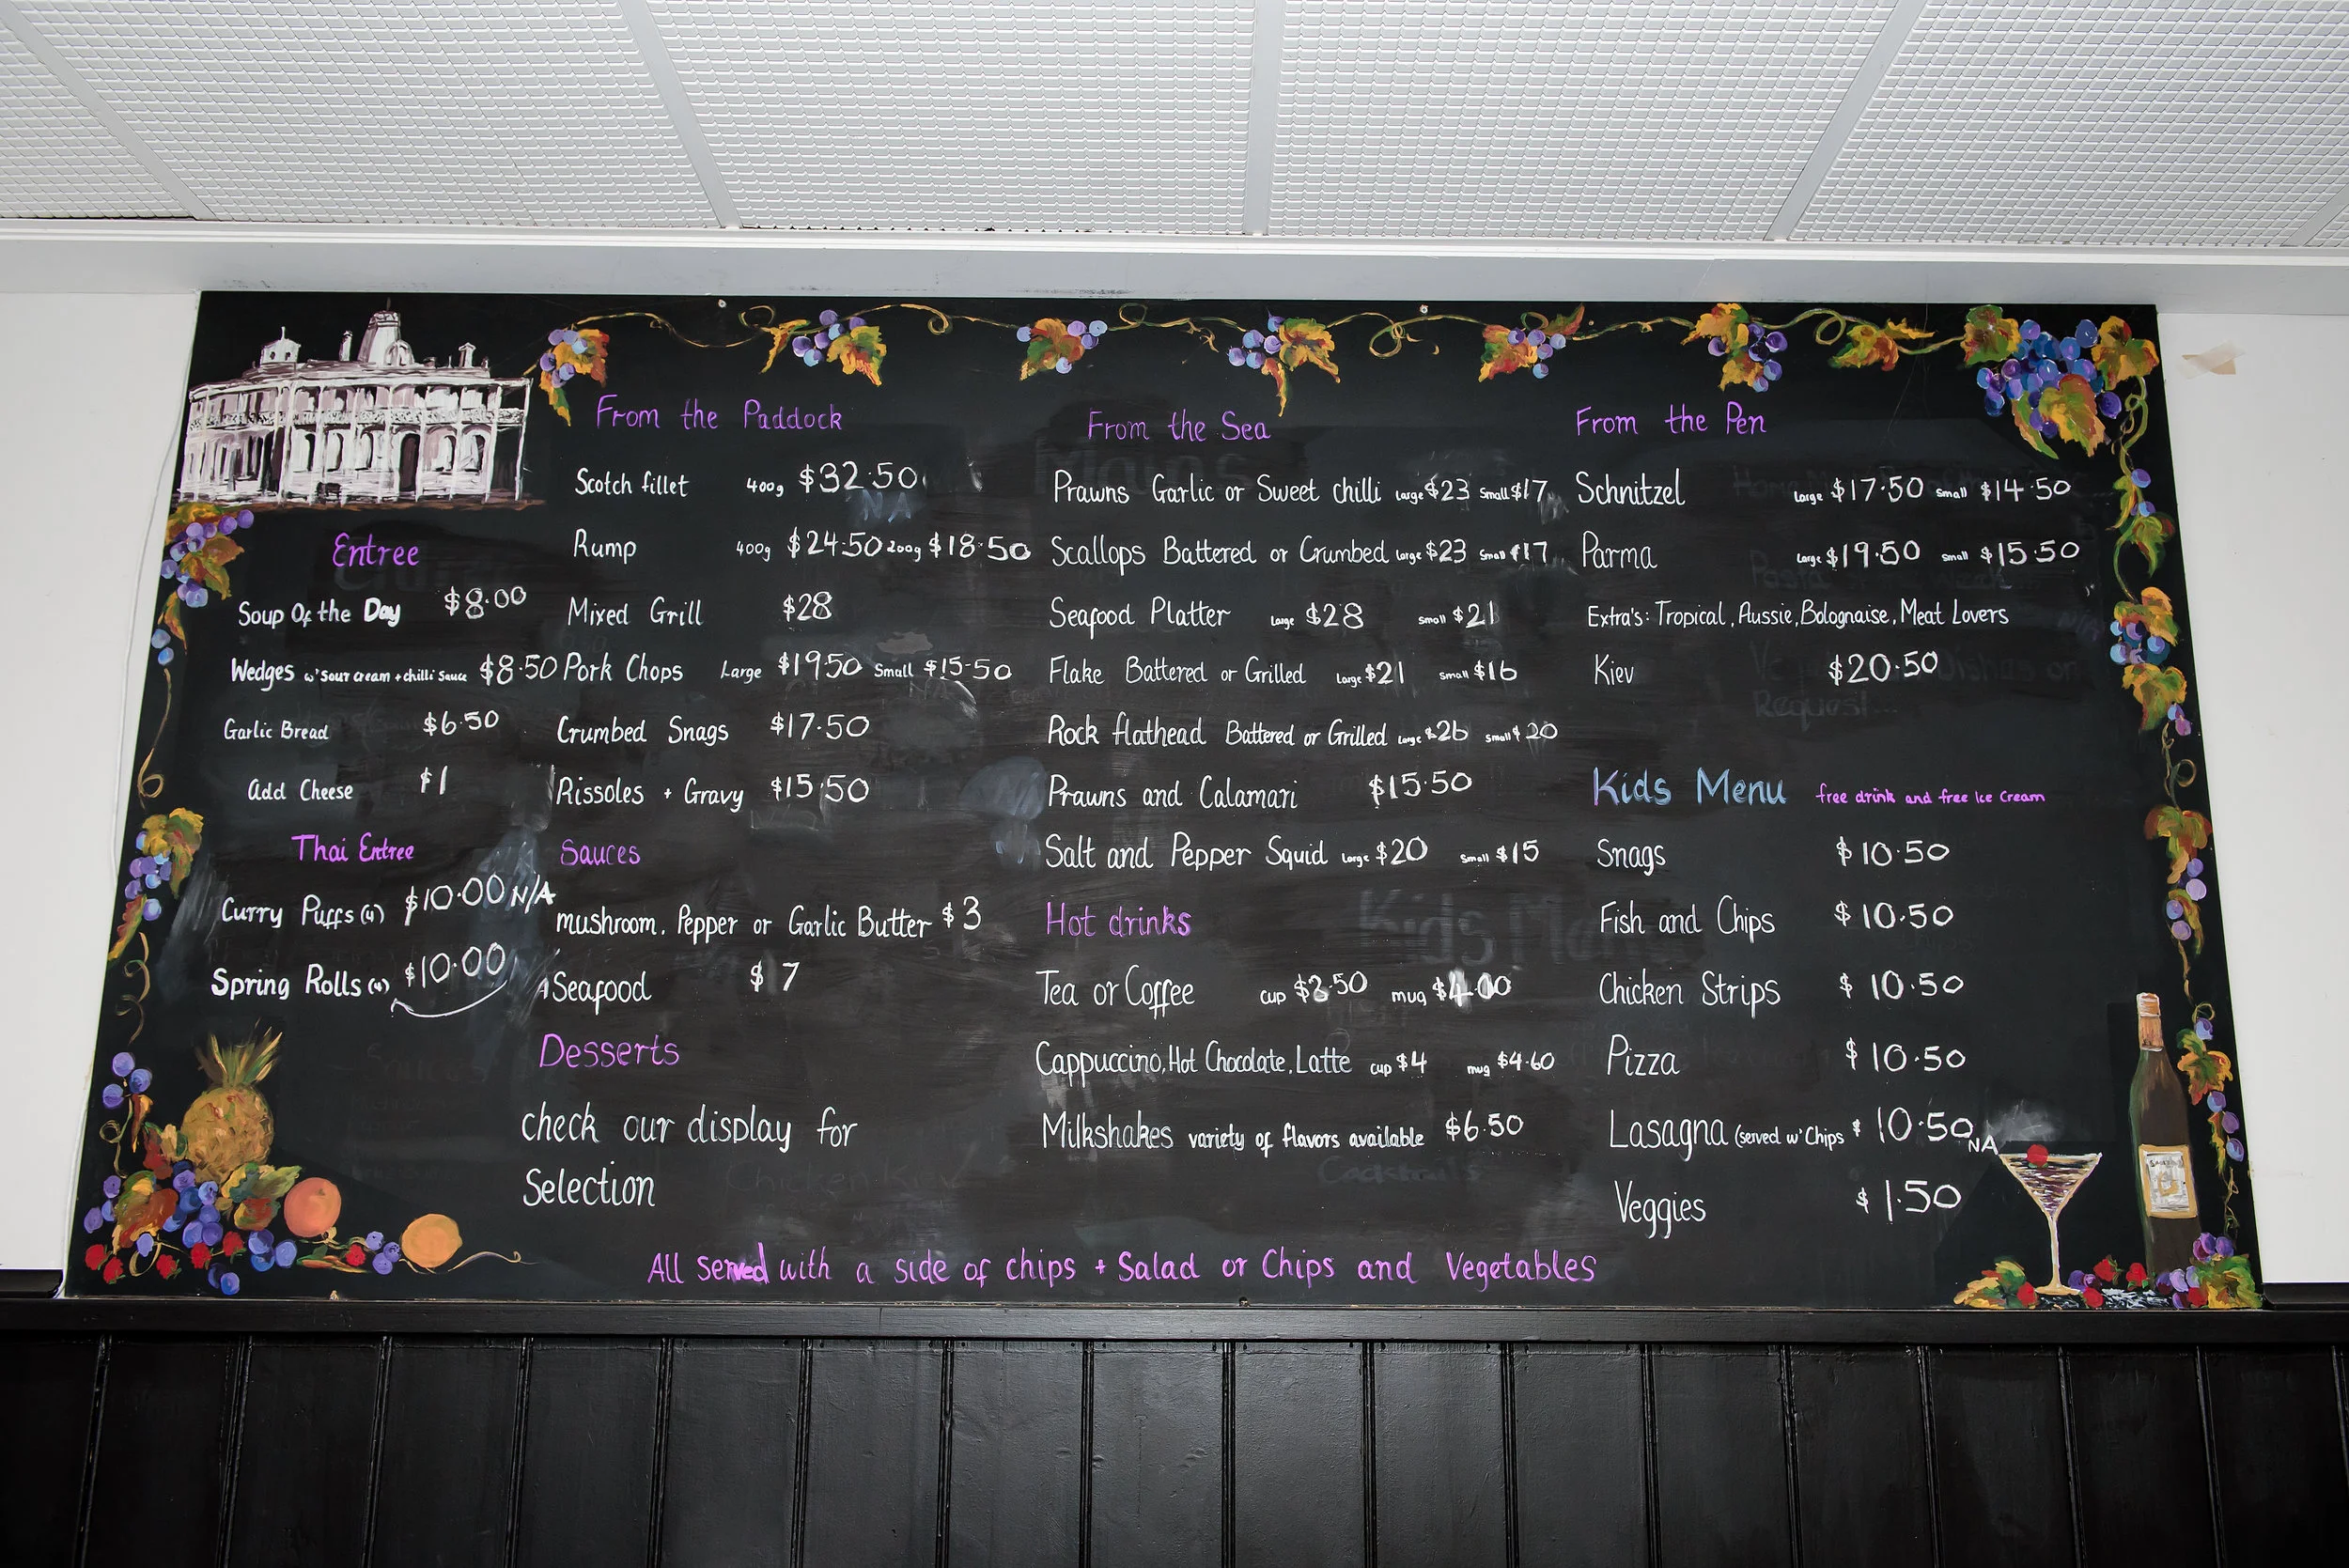 Entree
Soup Of the Day $8.00
Wedges w' Sour cream + chilli Sauce $8.50
Garlic Bread $6.50
Add Cheese $1
Thai Entree
Curry Puffs (4) $10.00 N/A
Spring Rolls (4) $10.00
From the Paddock
Scotch fillet 400g $32.50
Rump 400g $24.50 200g $18.50
Mixed Grill $28
Pork Chops Large $19.50 Small $15.50
Crumbed Snags $17.50
Rissoles + Gravy $15.50
Sauces
mushroom, Pepper or Garlic Butter $3
Seafood $7
Desserts
check our display for
Selection
From the Sea
Prawns Garlic or Sweet chilli Large $23 Small $17
Scallops Battered or Crumbed Large $23 Small $17
Seafood Platter Large $28 Small $21
Flake Battered or Grilled Large $21 Small $16
Rock flathead Battered or Grilled Large $26 Small $20
Prawns and Calamari $15.50
Salt and Pepper Squid Large $20 Small $15
Hot drinks
Tea or Coffee cup $3.50 mug $4.00
Cappuccino, Hot Chocolate, Latte cup $4 mug $4.60
Milkshakes variety of flavors available $6.50
From the Pen
Schnitzel Large $17.50 Small $14.50
Parma Large $19.50 Small $15.50
Extra's: Tropical, Aussie, Bolognaise, Meat Lovers
Kiev $20.50
Kids Menu free drink and free Ice Cream
Snags $10.50
Fish and Chips $10.50
Chicken Strips $10.50
Pizza $10.50
Lasagna (served w' Chips $10.50 NA
Veggies $1.50
All served with a side of chips + Salad or Chips and Vegetables